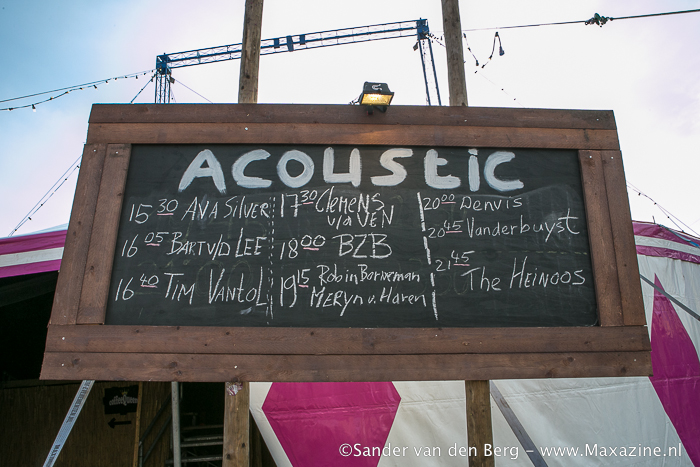 ACOUStic
15 30 AVA SILVER
16 05 BART V/D LEE
16 40 TIM VANTOL
17 30 CLEMENS
V/A VEN
18 00 BZB
19 15 Robin Borneman
MERYN v. Haren
20 00 Denvis
20 45 Vanderbuyst
21 45 The HEINOOS
©Sander van den Berg – www.Maxazine.nl